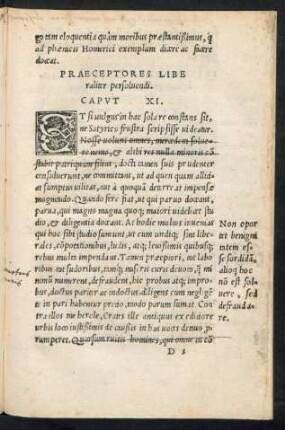 tam eloquentia quàm moribus præstantissimus, q
ad phœnicis Homerici exemplum dicere ac facere
doceat.
PRAECEPTORES LIBE
raliter persoluendi.
CAPVT XI.
ET si uulgus in hac sola re constans sit,
ne Satyrici frustra scripsisse uideatur.
Nosse uolunt omnes, mercedem soluere
nemo, & alibi res nulla minoris cõ
stabit patri quàm filius, docti tamen suis prudenter
consuluerunt, ne committant, ut ad quem quam alit id
sumptui utilitas, aut à
magnitudo. Quando fere fit, ut qui paruo docent,
parua, qui magno magna quoq; maiori uideãt stu
dio, & diligentia doceant. At hodie multos inuenias
qui hoc sibi admodum sumunt, ut cum undiq; sint libe
rales, cõpotationibus, ludis, atq; leuissimis quibusq;
rebus multæ impendant. Tamen præceptori, de labo
ribus ac sudoribus, timidis, miseris curis deuoct, qd mi
nimũ numerent, defraudent, hic probus atq; impro
bus, doctus pariter ac indoctus diligens cum negligẽ
te in pari habentur precio, modo parum sumat. Con
tra illos ne hercle, Crates ille antiquus ex editiore
urbis loco iustissimis de causis in has uoces denuo, p
rumperet. Quorsum ruitis homines, qui omne in cõ
D 3
Non opor
tet benigni
tatem es-
se sordidã,
alioq hoc
nõ est sol-
uere, sed
defrauda-
re.